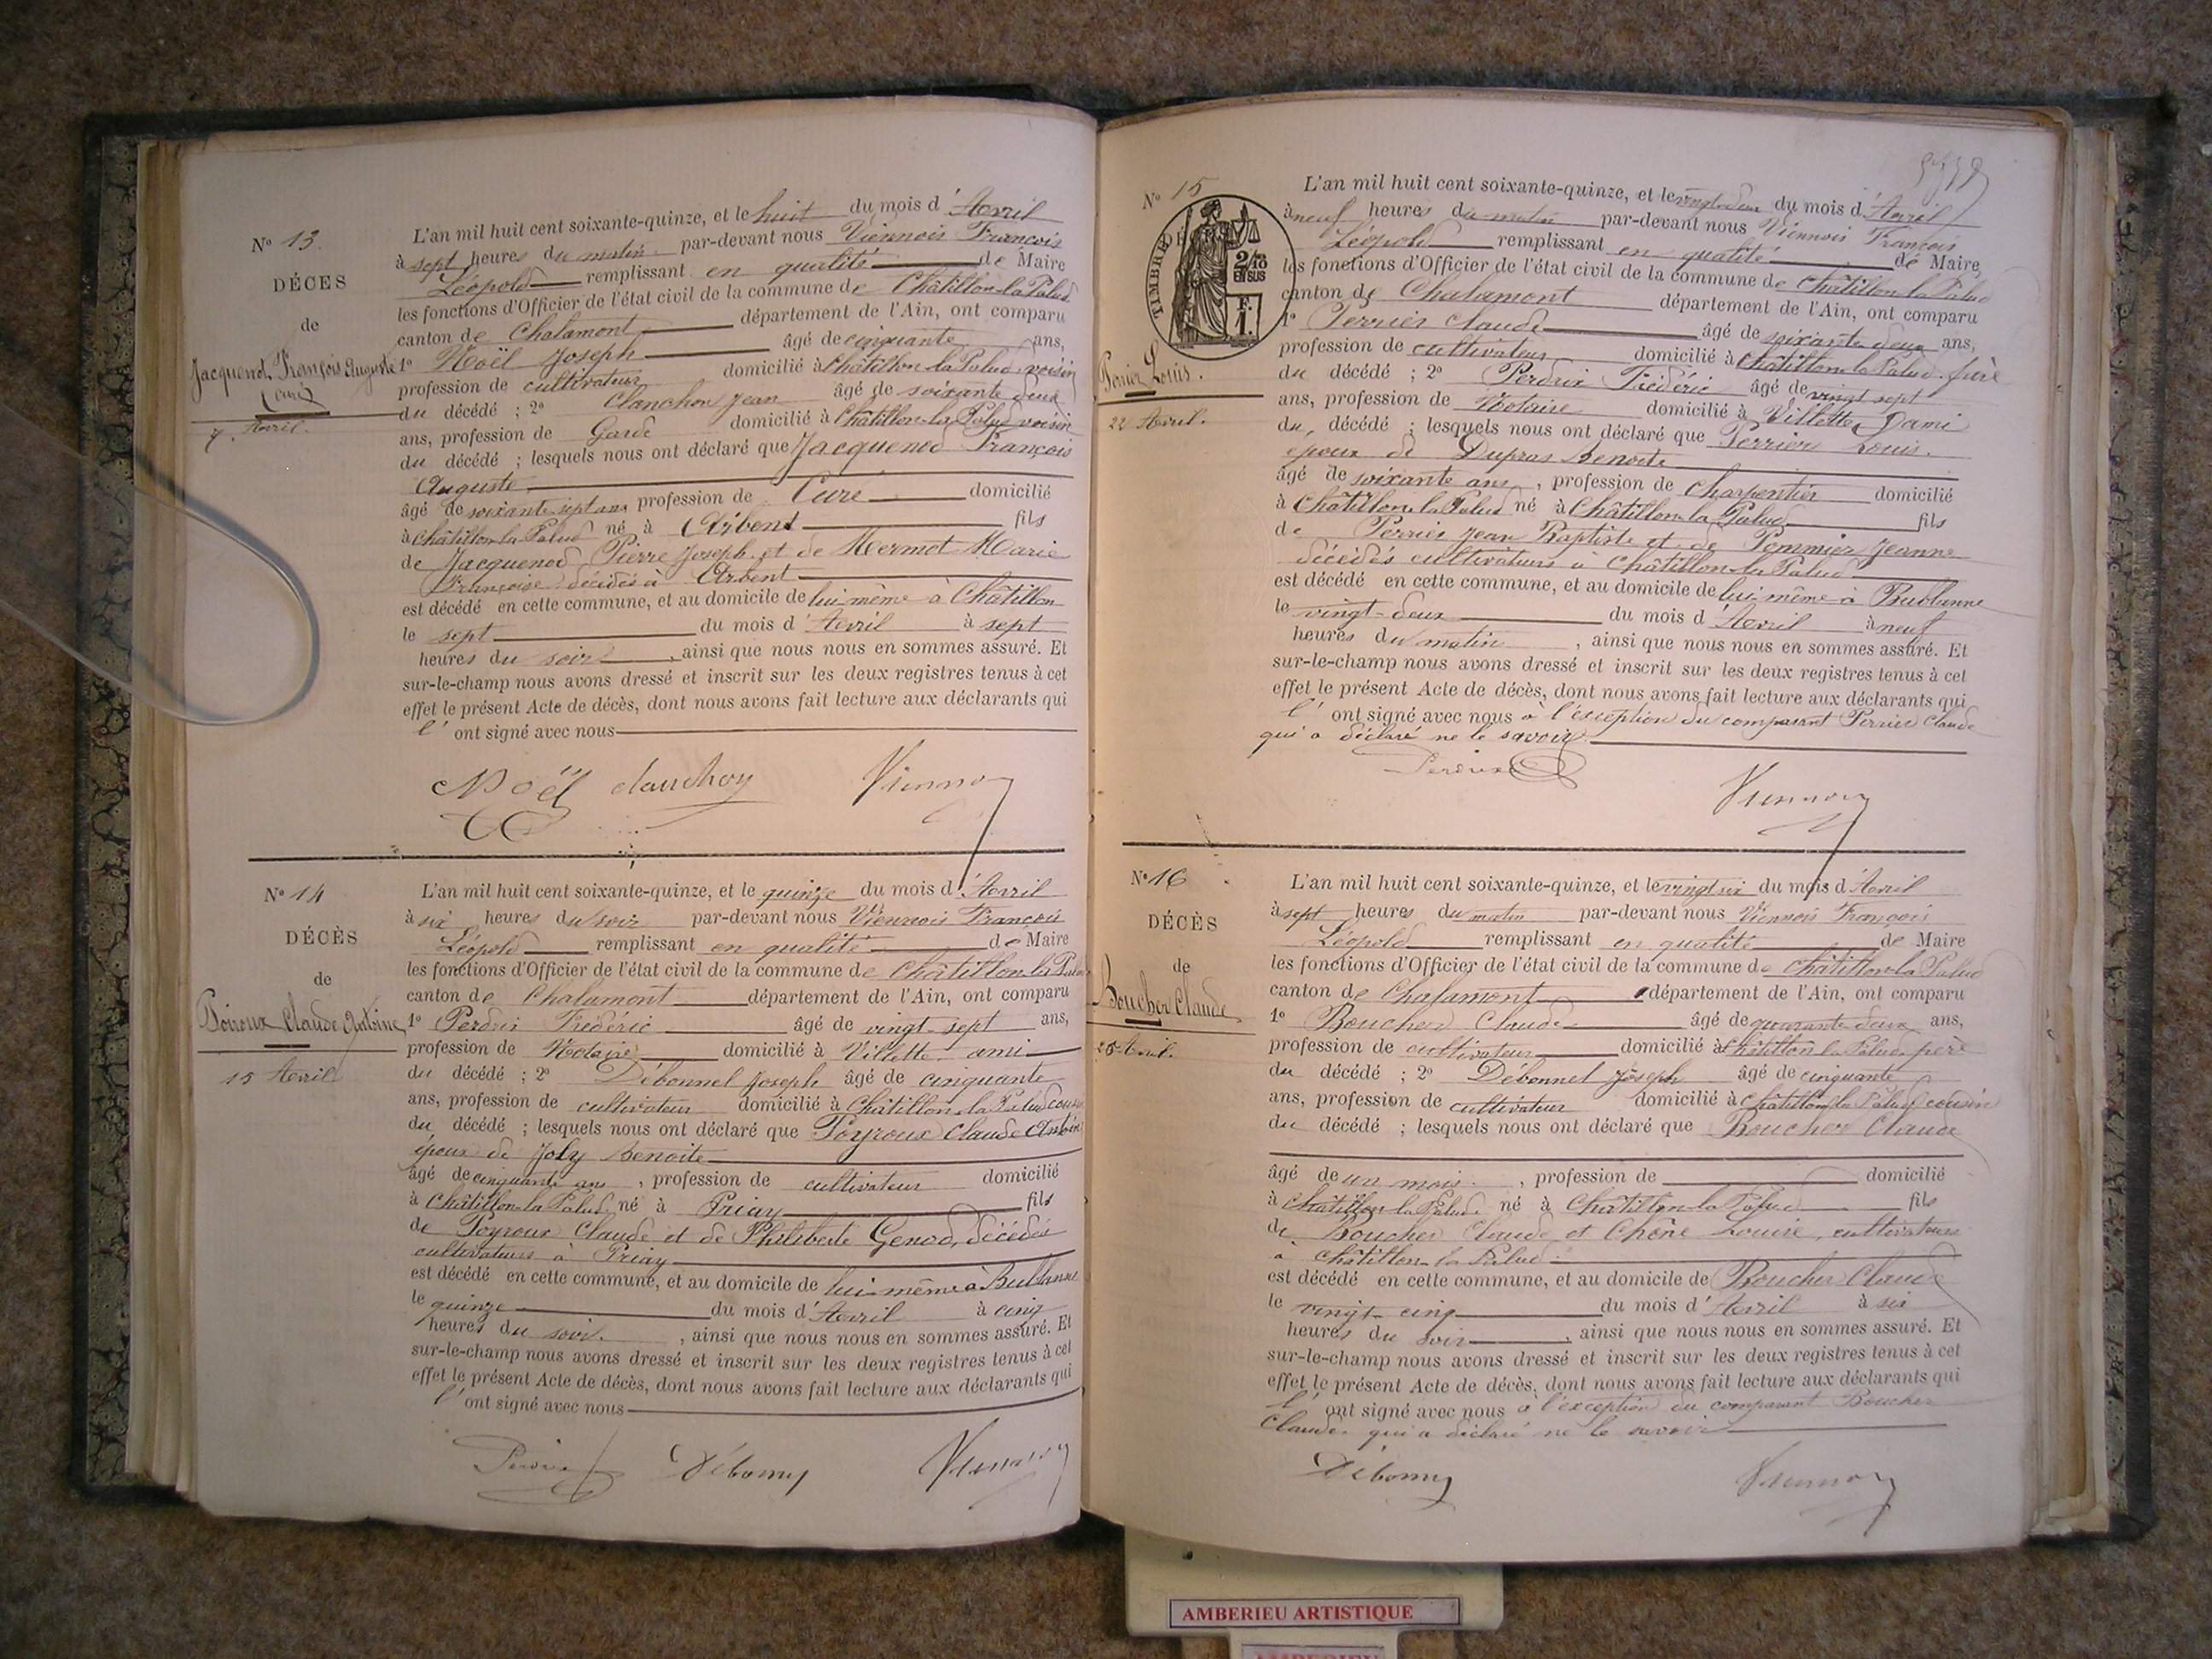 N° 13.
DÉCES
de
Jacquenod François Auguste
Curé
7. Avril.
L'an mil huit cent soixante-quinze, et le huit du mois d'Avril
à sept heures du matin par-devant nous Viennois François
Léopold remplissant en qualité de Maire
les fonctions d'Officier de l'état civil de la commune de Châtillon-la-Palud
canton de Chalamont département de l'Ain, ont comparu
1° Noël Joseph âgé de cinquante ans,
profession de cultivateur domicilié à Châtillon-la-Palud, voisin
du décédé ; 2° Clanchon Jean âgé de soixante deux
ans, profession de Garde domicilié à Châtillon-la-Palud voisin
du décédé ; lesquels nous ont déclaré que Jacquenod François
Auguste
âgé de soixante-sept ans profession de Curé domicilié
à Châtillon-la-Palud né à Arbent fils
de Jacquenod Pierre Joseph et de Mermet Marie
Françoise décédés à Arbent
est décédé en cette commune, et au domicile de lui-même à Châtillon
le sept du mois d'Avril à sept
heures du soir, ainsi que nous nous en sommes assuré. Et
sur-le-champ nous avons dressé et inscrit sur les deux registres tenus à cet
effet le présent Acte de décès, dont nous avons fait lecture aux déclarants qui
l'ont signé avec nous
Noël clanchoy Viennoy
N° 14
DÉCÈS
de
Poiroux Claude Antoine
15 Avril
L'an mil huit cent soixante-quinze, et le quinze du mois d'Avril
à six heures du soir par-devant nous Viennois François
Léopold remplissant en qualité de Maire
les fonctions d'Officier de l'état civil de la commune de Châtillon-la-Palud
canton de Chalamont département de l'Ain, ont comparu
1° Perdrix Frédéric âgé de vingt-sept ans,
profession de Notaire domicilié à Villette ami
du décédé ; 2° Débonnet Joseph âgé de cinquante
ans, profession de cultivateur domicilié à Châtillon-la-Palud cousin
du décédé ; lesquels nous ont déclaré que Poyroux Claude Antoine
époux de Joly Benoite
âgé de cinquante ans, profession de cultivateur domicilié
à Châtillon-la-Palud né à Priay fils
de Poyroux Claude et de Philiberte Genod, décédés
cultivateurs à Priay
est décédé en cette commune, et au domicile de lui-même à Bublanne
le quinze du mois d'Avril à cinq
heures du soir, ainsi que nous nous en sommes assuré. Et
sur-le-champ nous avons dressé et inscrit sur les deux registres tenus à cet
effet le présent Acte de décès, dont nous avons fait lecture aux déclarants qui
l'ont signé avec nous
Perdrix Débonny Viennoy
N° 15
TIMBRE
2/10 EN SUS
F. 1.
Perrier Louis.
22 Avril.
L'an mil huit cent soixante-quinze, et le vingt-deux du mois d'Avril
à neuf heures du matin par-devant nous Viennois François
Léopold remplissant en qualité de Maire
les fonctions d'Officier de l'état civil de la commune de Châtillon-la-Palud
canton de Chalamont département de l'Ain, ont comparu
1° Perrier Claude âgé de soixante deux ans,
profession de cultivateur domicilié à Châtillon-la-Palud. frère
du décédé ; 2° Perdrix Frédéric âgé de vingt sept
ans, profession de Notaire domicilié à Villette, ami
du décédé ; lesquels nous ont déclaré que Perrier Louis.
époux de Dupras Benoite
âgé de soixante ans, profession de charpentier domicilié
à Châtillon-la-Palud né à Châtillon-la-Palud fils
de Perrier Jean Baptiste et de Pommier Jeanne
décédés cultivateurs à Châtillon-la-Palud
est décédé en cette commune, et au domicile de lui-même à Bublanne
le vingt-deux du mois d'Avril à neuf
heures du matin, ainsi que nous nous en sommes assuré. Et
sur-le-champ nous avons dressé et inscrit sur les deux registres tenus à cet
effet le présent Acte de décès, dont nous avons fait lecture aux déclarants qui
l'ont signé avec nous à l'exception du comparant Perrier Claude
qui a déclaré ne le savoir.
Perdrix Viennoy
N° 16
DÉCÈS
de
Boucher Claude
25 Avril.
L'an mil huit cent soixante-quinze, et le vingt six du mois d'Avril
à sept heures du matin par-devant nous Viennois François
Léopold remplissant en qualité de Maire
les fonctions d'Officier de l'état civil de la commune de Châtillon-la-Palud
canton de Chalamont département de l'Ain, ont comparu
1° Boucher Claude âgé de quarante deux ans,
profession de cultivateur domicilié à Châtillon-la-Palud. père
du décédé ; 2° Débonnet Joseph âgé de cinquante
ans, profession de cultivateur domicilié à Châtillon-la-Palud cousin
du décédé ; lesquels nous ont déclaré que Boucher Claude
âgé de un mois., profession de domicilié
à Châtillon-la-Palud né à Châtillon-la-Palud fils
de Boucher Claude et Chêne Louise, cultivateurs
à Châtillon-la-Palud
est décédé en cette commune, et au domicile de Boucher Claude
le vingt-cinq du mois d'Avril à six
heures du soir, ainsi que nous nous en sommes assuré. Et
sur-le-champ nous avons dressé et inscrit sur les deux registres tenus à cet
effet le présent Acte de décès, dont nous avons fait lecture aux déclarants qui
l'ont signé avec nous à l'exception du comparant Boucher
Claude. qui a déclaré ne le savoir
Débonny Viennoy
AMBERIEU ARTISTIQUE
AMBERIEU